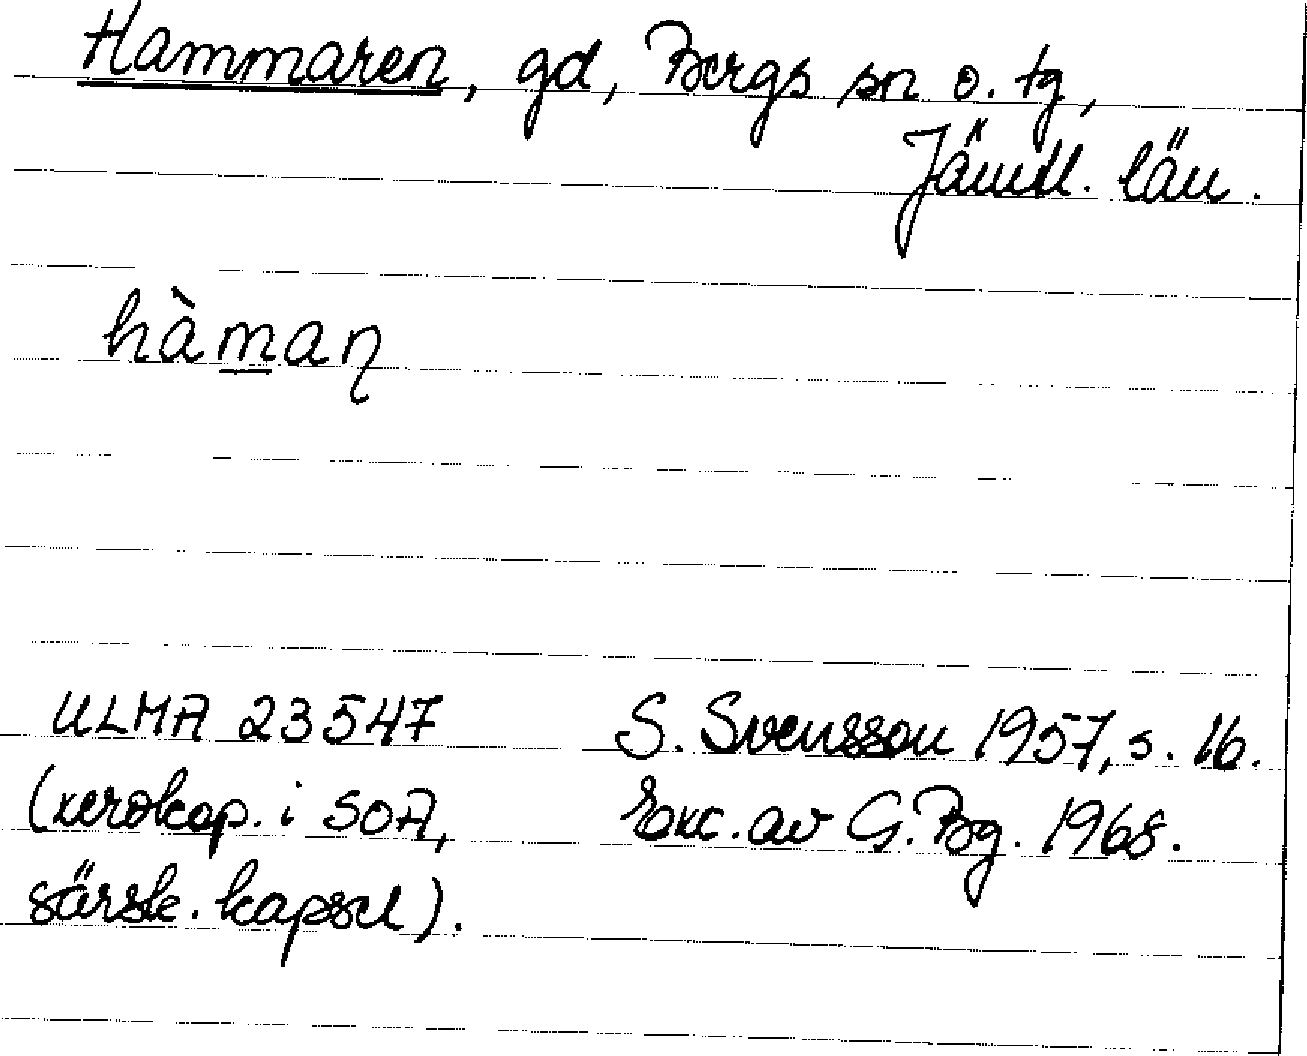 Hammaren, gd, Bergs sn o. tg,
Jämtl. län.
hàmaꞃ
ULMA 23547
(xerokop. i SOA,
särsk. kapsel).
S. Svensson 1957, s. 16.
Exc. av G. Bg. 1968.